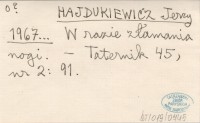 HAJDUKIEWICZ Jerzy
1967... W razie złamania
nogi. - Taternik 45,
nr 2: 91.